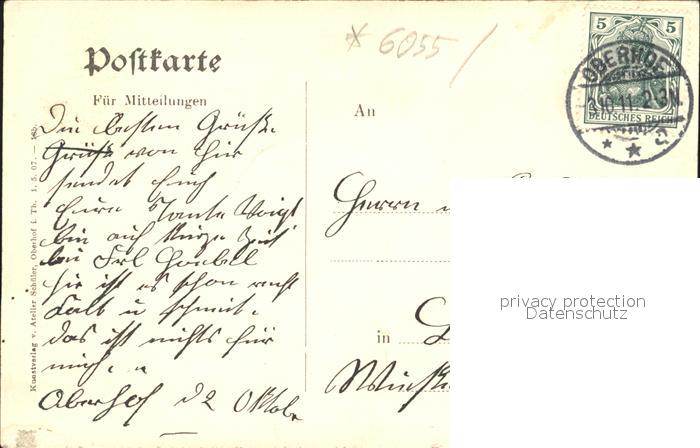 * 6055 /
Postkarte
Für Mitteilungen
Die besten Grüße
Grüße von hier
sendet Euch
Eure Tante Voigt
bin auf kurze Zeit
bei Frl
hier ist es schon recht
kalt u
das ist nichts für
mich.
Oberhof d 2 Oktobr
Kunstverlag v. Atelier Schüler, Oberhof i. Th. 1. 5. 07.
5 5
DEUTSCHES REICH
OBERHOF
3.10.11. 2-3N.
* * a
An
Herrn
in
privacy protection
Datenschutz